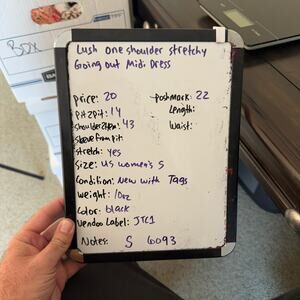 Lush one shoulder stretchy
Going out Midi Dress
Price: 20
Postmark: 22
Pit 2 pit: 14
Length:
Shoulder 2 Hem: 43
Waist:
Sleeve from pit:
Stretch: yes
Size: US women's S
Condition: New with Tags
Weight: 10oz
Color: black
Vendoo Label: JTC1
Notes: S 6093
BOX